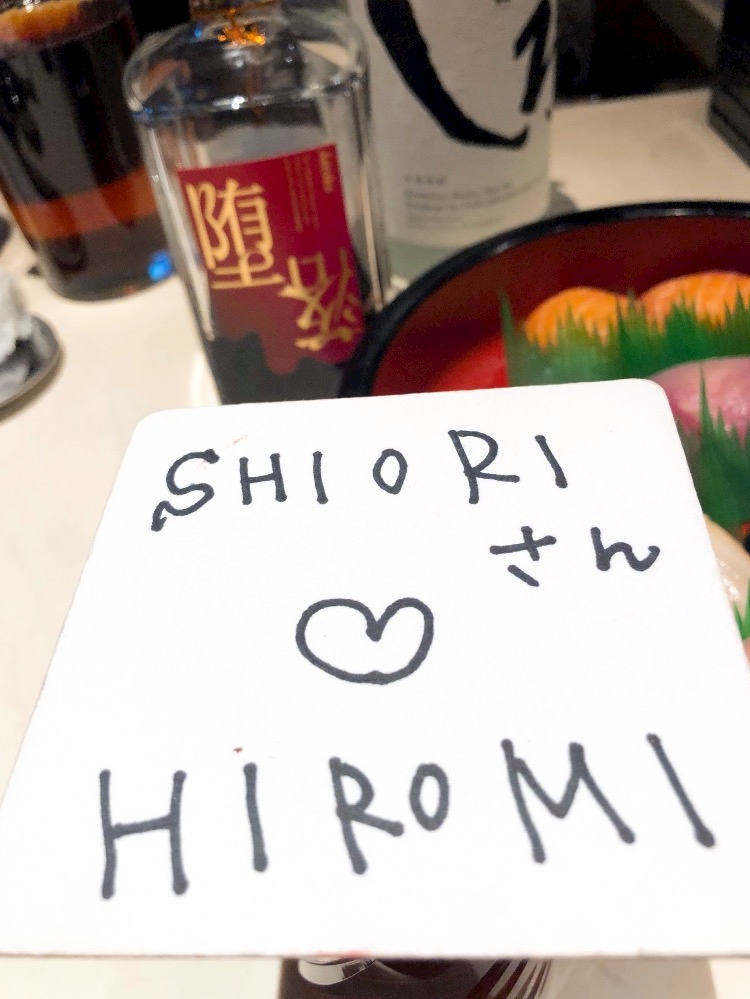 堕落
SHIORI
さん
HIROMI